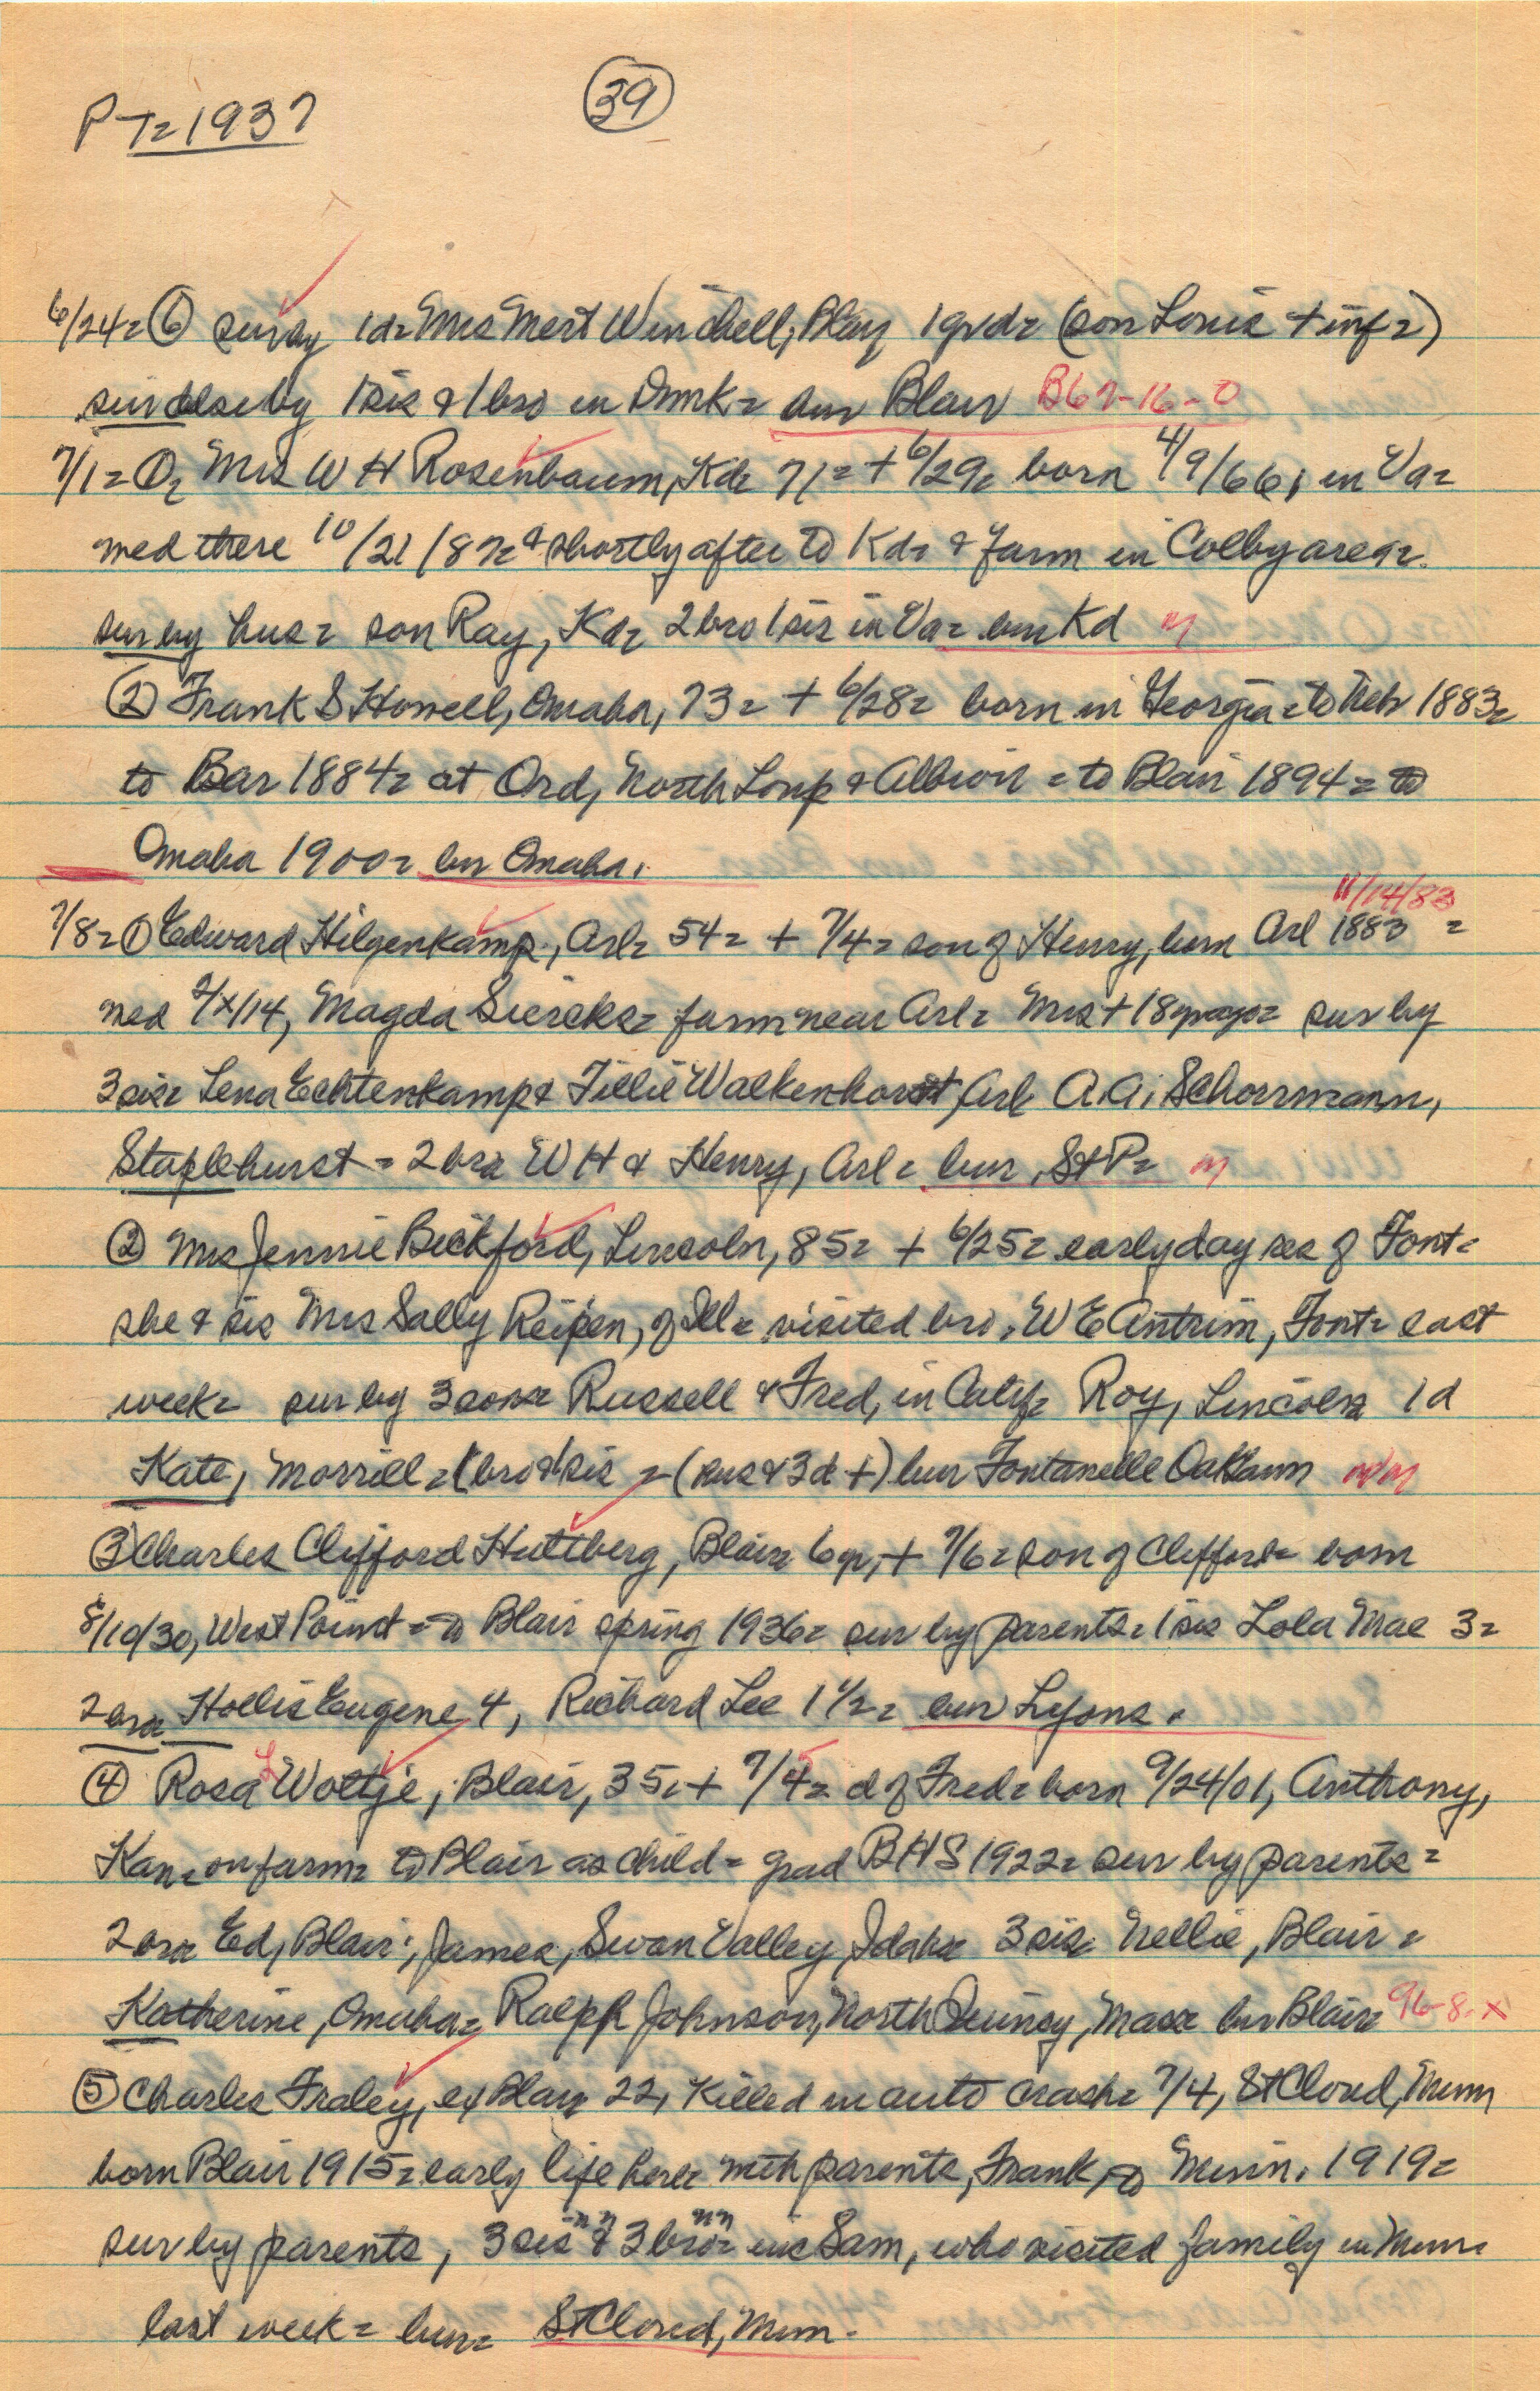 PT= 1937
39
6/24= ⑥ surby 1d= Mrs Mert Winchell, Blair 1grd= (son Louis + inf=)
sur also by 1 sis & 1 bro in Dnmk= bur Blair B67-16-0
7/1= ①= Mrs W H Rosenbaum, Kd= 71= + 6/29= born 4/9/66, in Va=
med there 10/21/87= & shortly after to Kd= & farm in Colby area=
sur by hus= son Ray, Kd= 2 bro 1 sis in Va= bur Kd m
② Frank S Howell, Omaha, 73= + 6/28= born in Georgia= to Neb 1883=
to Bar 1884= at Ord, North Loup & Albion = to Blair 1894= to
Omaha 1900= bur Omaha.
7/8= ① Edward Hilgenkamp, Arl= 54= + 7/4= son of Henry, born Arl 1883 = 11/14/83
med /14, Magda Siercks= farm near Arl= Mrs + 18 yr ago= sur by
3 sis= Lena Echtenkamp & Tillie Walkenhorst, Arl A.A. Schorrmann,
Staplehurst = 2 bro= W H & Henry, Arl= bur, St P= m
② Mrs Jennie Bickford, Lincoln, 85= + 6/25= early day res of Font=
she & sis Mrs Sally Reipen, of Ill= visited bro, W E Antrim, Font= last
week= sur by 3 sons= Russell & Fred, in Calif= Roy, Lincoln= 1 d
Kate, Morrill= 1 bro & 1 sis = (hus & 3 d +) bur Fontanelle
③ Charles Clifford Hultberg, Blair= 6 yr, + 7/6= son of Clifford= born
8/10/30, West Point= to Blair spring 1936= sur by parents= 1 sis Lola Mae 3=
2 bro= Hollis Eugene 4, Richard Lee 1 1/2= bur Lyons.
④ Rosa L Woltje, Blair, 35= + 7/4= d of Fred= born 9/24/01, Anthony,
Kan= on farm= to Blair as child= grad BHS 1922= sur by parents=
2 bro= Ed, Blair; James, Swan Valley, Idaho= 3 sis= Nellie, Blair=
Katherine, Omaha= Ralph Johnson, North Quincy, Mass= bur Blair= 96-8-x
⑤ Charles Fraley, ex Blair 22, killed in auto crash= 7/4, St Cloud, Minn
born Blair 1915= early life here= with parents, Frank, to Minn. 1919=
sur by parents, 3 sis nn & 3 bro= nn inc Sam, who visited family in Minn=
last week= bur= St Cloud, Minn.